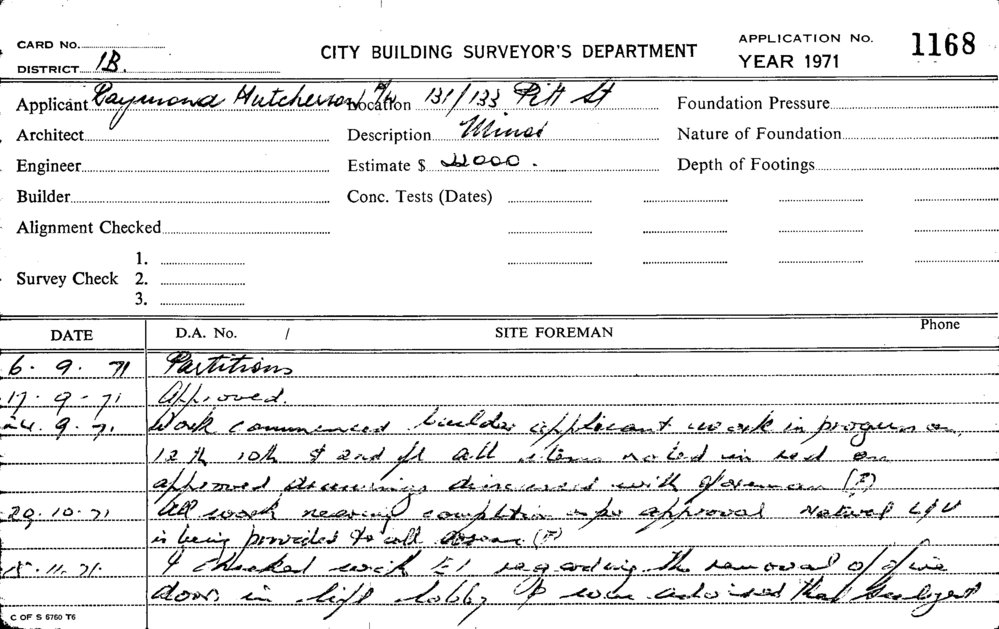 CARD No.
CITY BUILDING SURVEYOR'S DEPARTMENT
APPLICATION No. 1168
DISTRICT 1B.
YEAR 1971
Applicant Raymond Hutcherson P/L Location 131/133 Pitt St Foundation Pressure
Architect Description Minor Nature of Foundation
Engineer Estimate $ 22000. Depth of Footings
Builder Conc. Tests (Dates)
Alignment Checked
1.
Survey Check 2.
3.
DATE D.A. No. / SITE FOREMAN Phone
6. 9. 71 Partitions
17. 9 - 71 Approved.
24. 9. 71 Work commenced builder applicant work in progress on
12th 10th & 2nd fl all items noted in red on
approved drawings discussed with foreman (F)
29. 10. 71 All work nearing completion as per approval Natural L/V
is being provided to all (F)
11. 71. I checked with regarding the removal of fire
doors in lift lobby I was advised that
C OF S 5760 T6